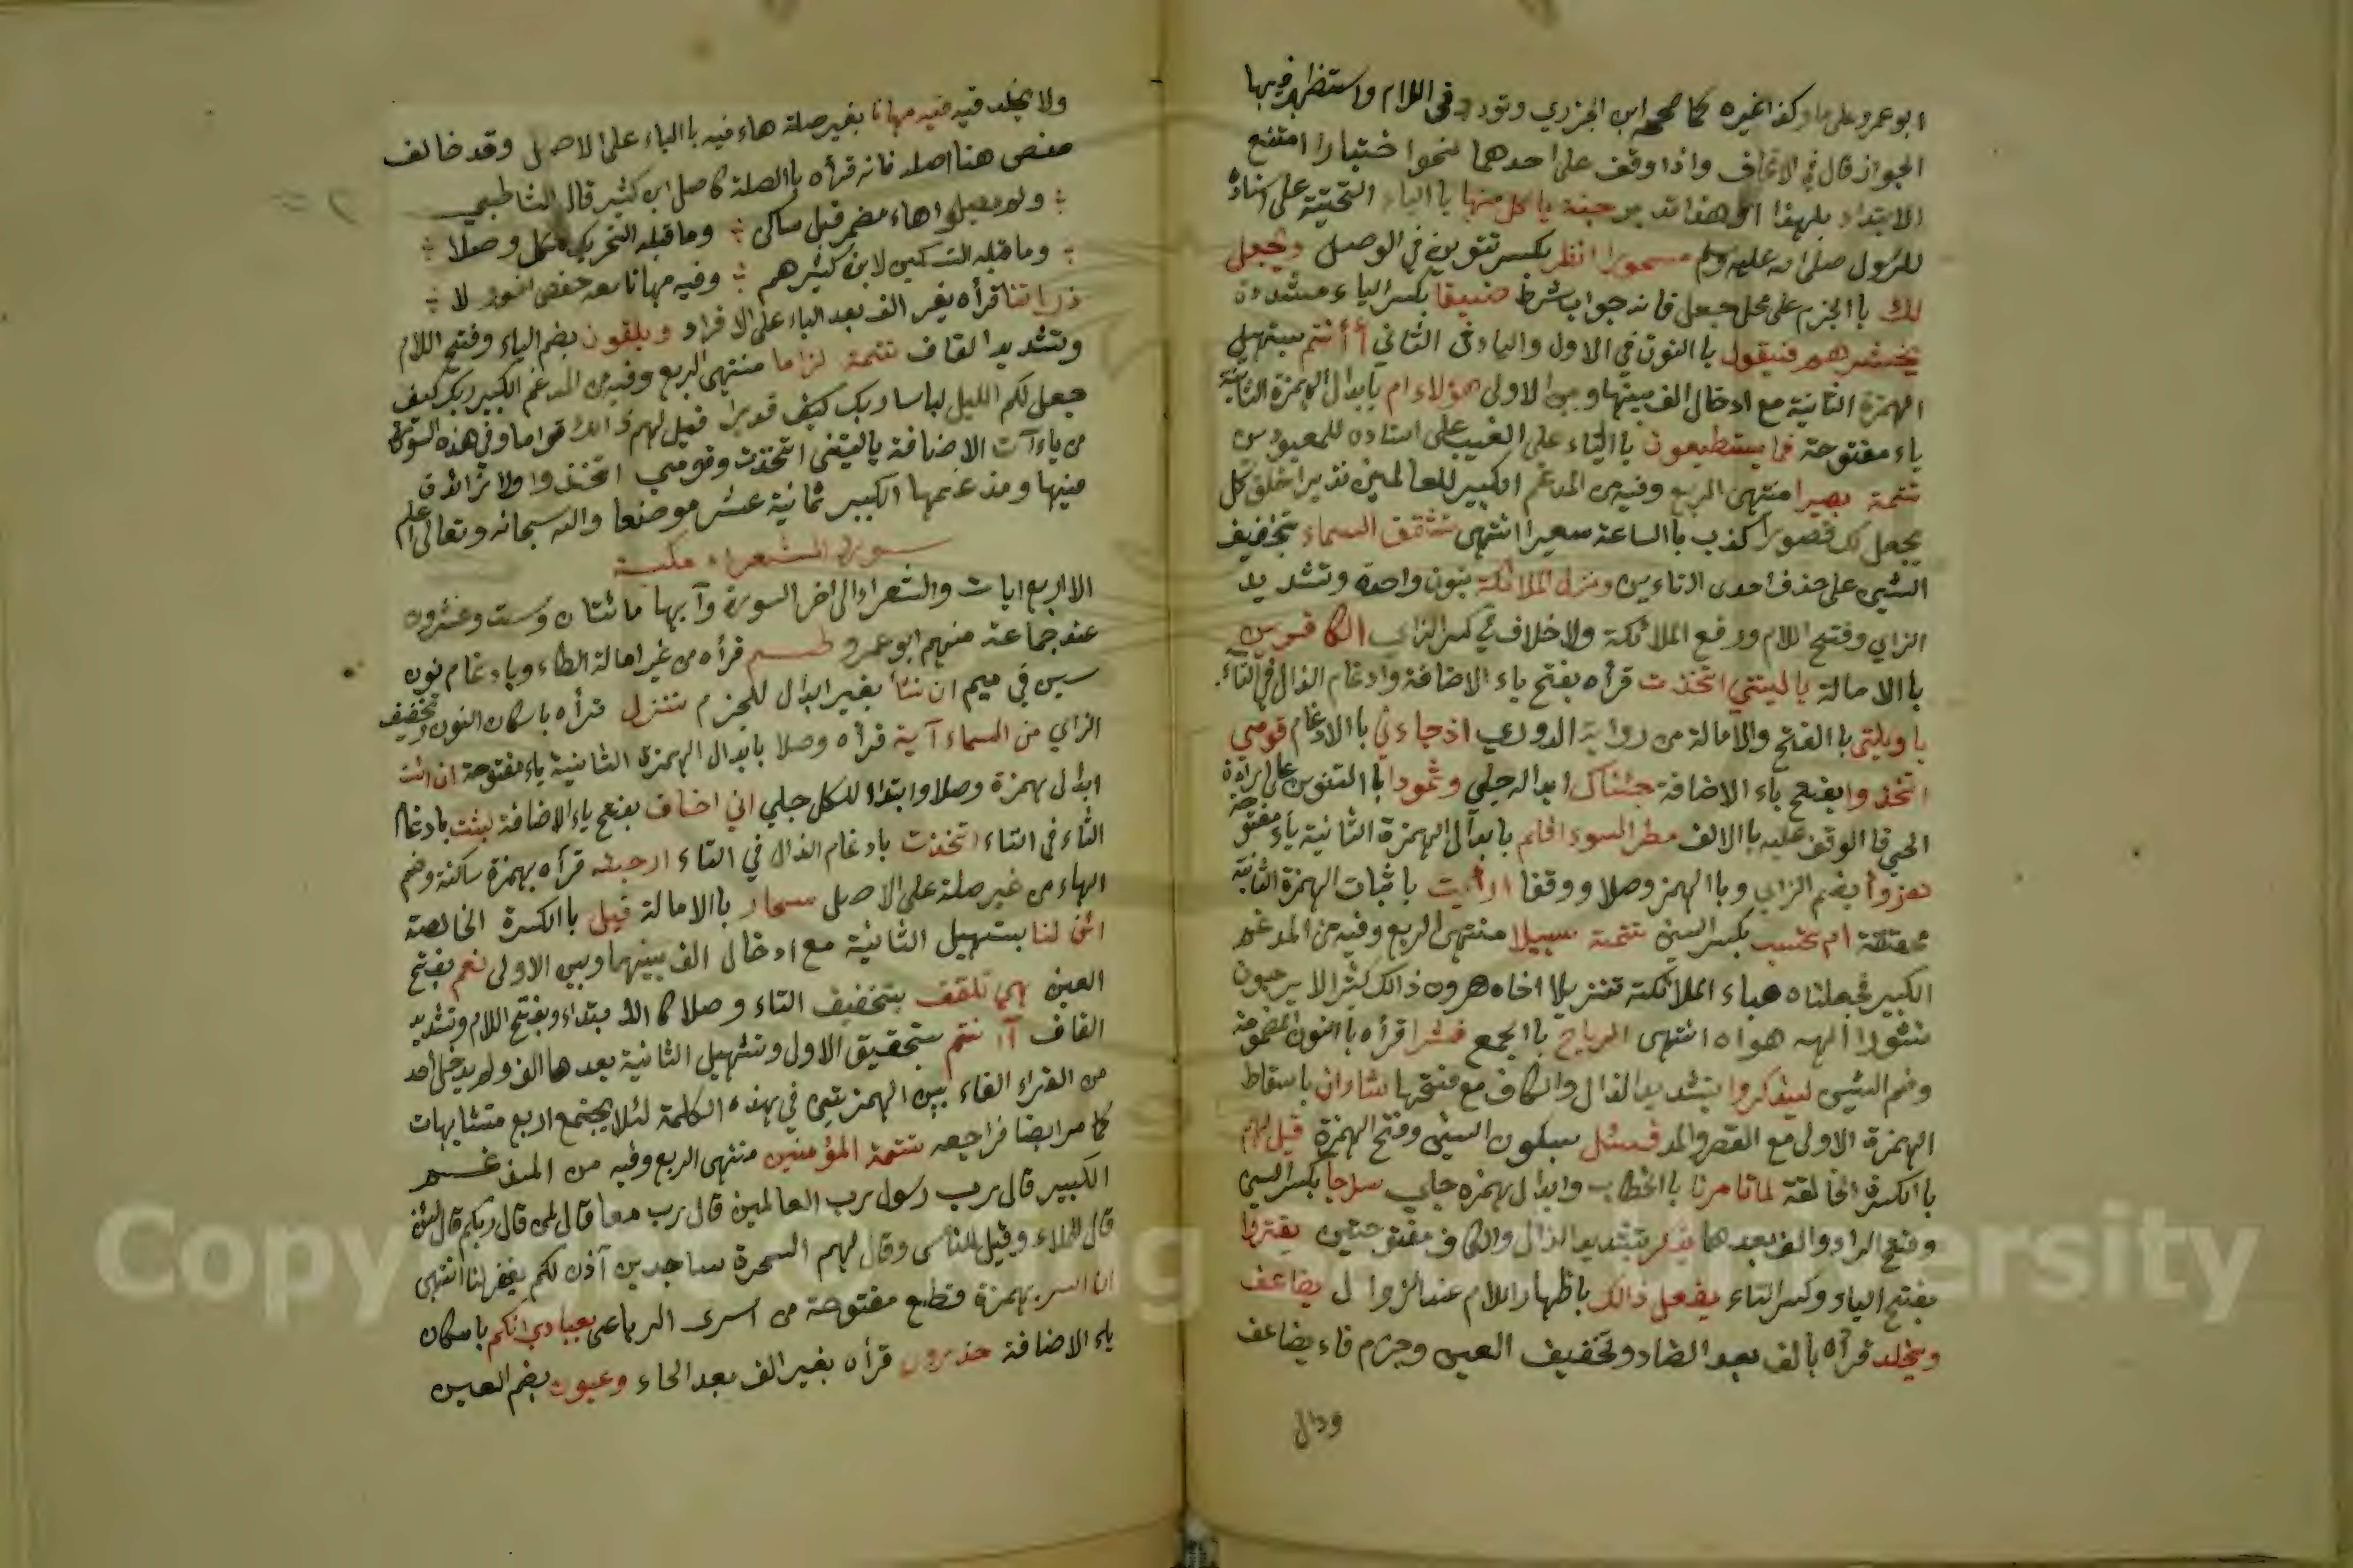 ابو عمرو على ما وكذا غيره كما صححه ابن الجزري وتودد في اللام واستظهر فيها
الجواز قال في الاتحاف واذا وقف على احدهما نحوا ختبارا امتنع
الابتداء بلهذا او هذا جنة ياكل منها باالياء التحتية على اسناده
للرسول صلى الله عليه وسلم مسحورا انظر بكسر تنوين في الوصل ويجعل
لك باالجزم على محل جعل فانه جواب شرط ضيقا بكسر الياء مشددة
يحشرهم فيقول باالنون في الاول والياء في الثاني أأنتم بتسهيل
الهمزة الثانية مع ادخال الف بينها وبين الاولى هؤلاء ام بابدال الهمزة الثانية
ياء مفتوحة فما يستطيعون باالياء على الغيب على اسناده للمعبودين
تتمة بصيرا منتهى الربع وفيه من المدغم الكبير للعالمين نذيرا خلق كل
يجعل لك قصورا كذب باالساعة سعيرا انتهى تشقق السماء بتخفيف
الشين على حذف احدى التاءين ونزل الملائكة بنون واحدة وتشديد
الزاي وفتح اللام ورفع الملائكة ولا خلاف في كسر الزاي الكافرين
باالامالة ياليتني اتخذت قرأه بفتح ياء الاضافة وادغام الذال في التاء
ياويلتى باالفتح والامالة من رواية الدوري اذ جاءني باالادغام قومي
اتخذوا بفتح ياء الاضافة جئناك ابداله جلي وثمودا باالتنوين على ارادة
الحي فاالوقف عليه باالالف مطر السوء افلم بابدال الهمزة الثانية ياء مفتوحة
هزوا بضم الزاي وباالهمز وصلا ووقفا ارأيت باثبات الهمزة الثانية
محققة ام تحسب بكسر السين تتمة سبيلا منتهى الربع وفيه من المدغم
الكبير فجعلناه هباء الملائكة تنزيلا اخاه هرون ذالك كثيرا لا يرجون
نشورا الهه هواه انتهى الرياح باالجمع نشرا قرأه باالنون المضمومة
وضم الشين ليذكروا بتشديد الذال والكاف مع فتحها شاء ان باسقاط
الهمزة الاولى مع القصر والمد فسئل بسكون السين وفتح الهمزة قيل لهم
باالكسرة الخالصة لما تامرنا باالخطاب وابدال همزه جلي سراجا بكسر السين
وفتح الراء والف بعدها يذكر بتشديد الذال والكاف مفتوحتين يقتروا
بفتح الياء وكسر التاء يفعل ذالك باظهار اللام عند الذال يضاعف
ويخلد قرأه بألف بعد الضاد وتخفيف العين وجزم فاء يضاعف
ودال
ولا يخلد فيه فيه مهانا بغير صلة هاء فيه باالياء على الاصل وقد خالف
حفص هنا اصله فانه قرأه باالصلة كاصل ابن كثير قال الشاطبي
ولم يصلوا هاء مضمر قبل ساكن وما قبله التحريك للكل وصلا
وما قبله التسكين لابن كثيرهم وفيه مهانا معه حفص اخو ولا
ذرياتنا قرأه بغير الف بعد الياء على الافراد ويلقون بضم الياء وفتح اللام
وتشديد القاف تتمة لزاما منتهى الربع وفيه من المدغم الكبير ربك كيف
جعل لكم الليل لباسا ربك كيف قديرا قيل لهم ذالك قواما وفي هذه السورة
من ياءآت الاضافة ياليتني اتخذت وقومي اتخذوا ولا زائدة
فيها ومدغمها الكبير ثمانية عشر موضعا والله سبحانه وتعالى اعلم
سورة الشعراء مكية
الا اربع ايات والشعراء الى اخر السورة وآيها مائتان وست وعشرون
عند جماعة منهم ابو عمرو طسم قرأه من غير امالة الطاء وبادغام نون
سين في ميم ان نشأ بغير ابدال للجزم ننزل قرأه باسكان النون وتخفيف
الزاي من السماء آية قرأه وصلا بابدال الهمزة الثانية ياء مفتوحة ان ائت
ابدال همزة وصلا وابتداء للكل جلي اني اخاف بفتح ياء الاضافة لبثت بادغام
الثاء في التاء اتخذت بادغام الذال في التاء ارجئه قرأه بهمزة ساكنة وضم
الهاء من غير صلة على الاصل سحار باالامالة قيل باالكسرة الخالصة
ائن لنا بتسهيل الثانية مع ادخال الف بينهما وبين الاولى نعم بفتح
العين هي تلقف بتخفيف التاء وصلا كاالابتداء وبفتح اللام وتشديد
القاف أآنتم بتحقيق الاولى وتسهيل الثانية بعدها الف ولم يدخل احد
من القراء الفاء بين الهمزتين في هذه الكلمة لئلا يجتمع اربع متشابهات
كما مر ايضا فراجعه تتمة المؤمنين منتهى الربع وفيه من المدغم
الكبير قال رب رسول رب العالمين قال رب معا قال لمن قال ربكم قال لئن
قال للملاء وقيل للناس وقال لهم السحرة ساجدين آذن لكم يغفر لنا انتهى
ان اسر بهمزة قطع مفتوحة من اسرى الرباعي بعبادي انكم باسكان
ياء الاضافة حذرون قرأه بغير الف بعد الحاء وعيون بضم العين